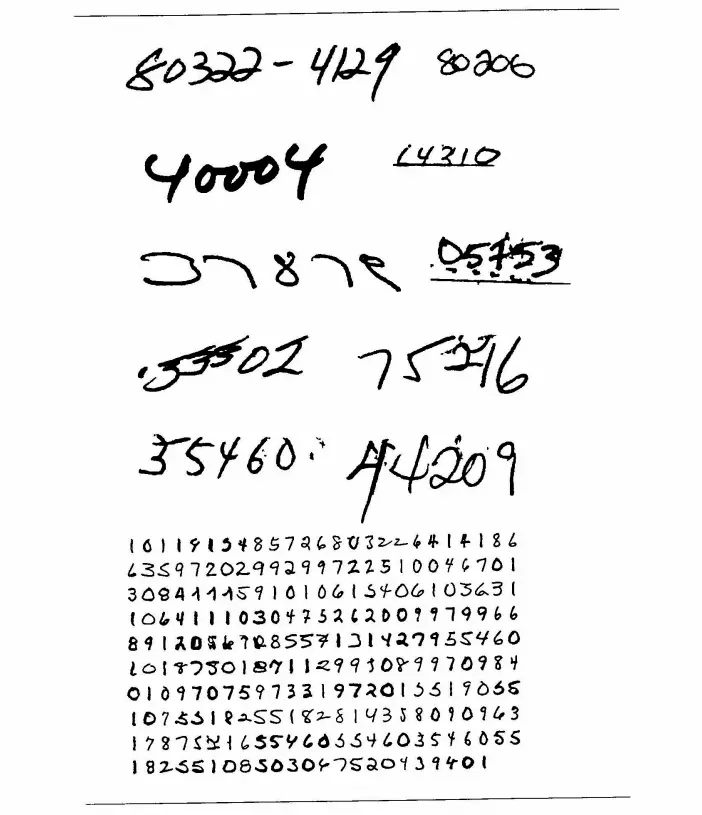 80322-4129 80206
40004 14310
37878 05753
.35502 75216
35460 44209
1011915485726803226414186
6359720299299722510046701
3084111591010615406103631
1064111030475262009979966
8912056708557131427955460
1018750187112993089970984
0109707597331972015519055
1075518255182814358090963
1787521655460554603546055
18255108503047520439401